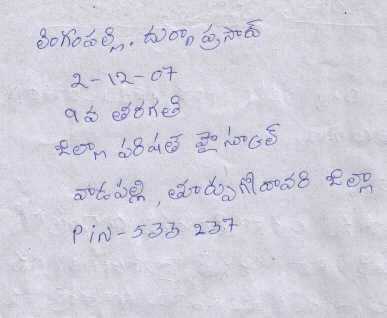 లింగంపల్లి. దుర్గా ప్రసాద్
2-12-07
9వ తరగతి
జిల్లా పరిషత్ హైస్కూల్
వాడపల్లి, తూర్పుగోదావరి జిల్లా
PiN-533 237